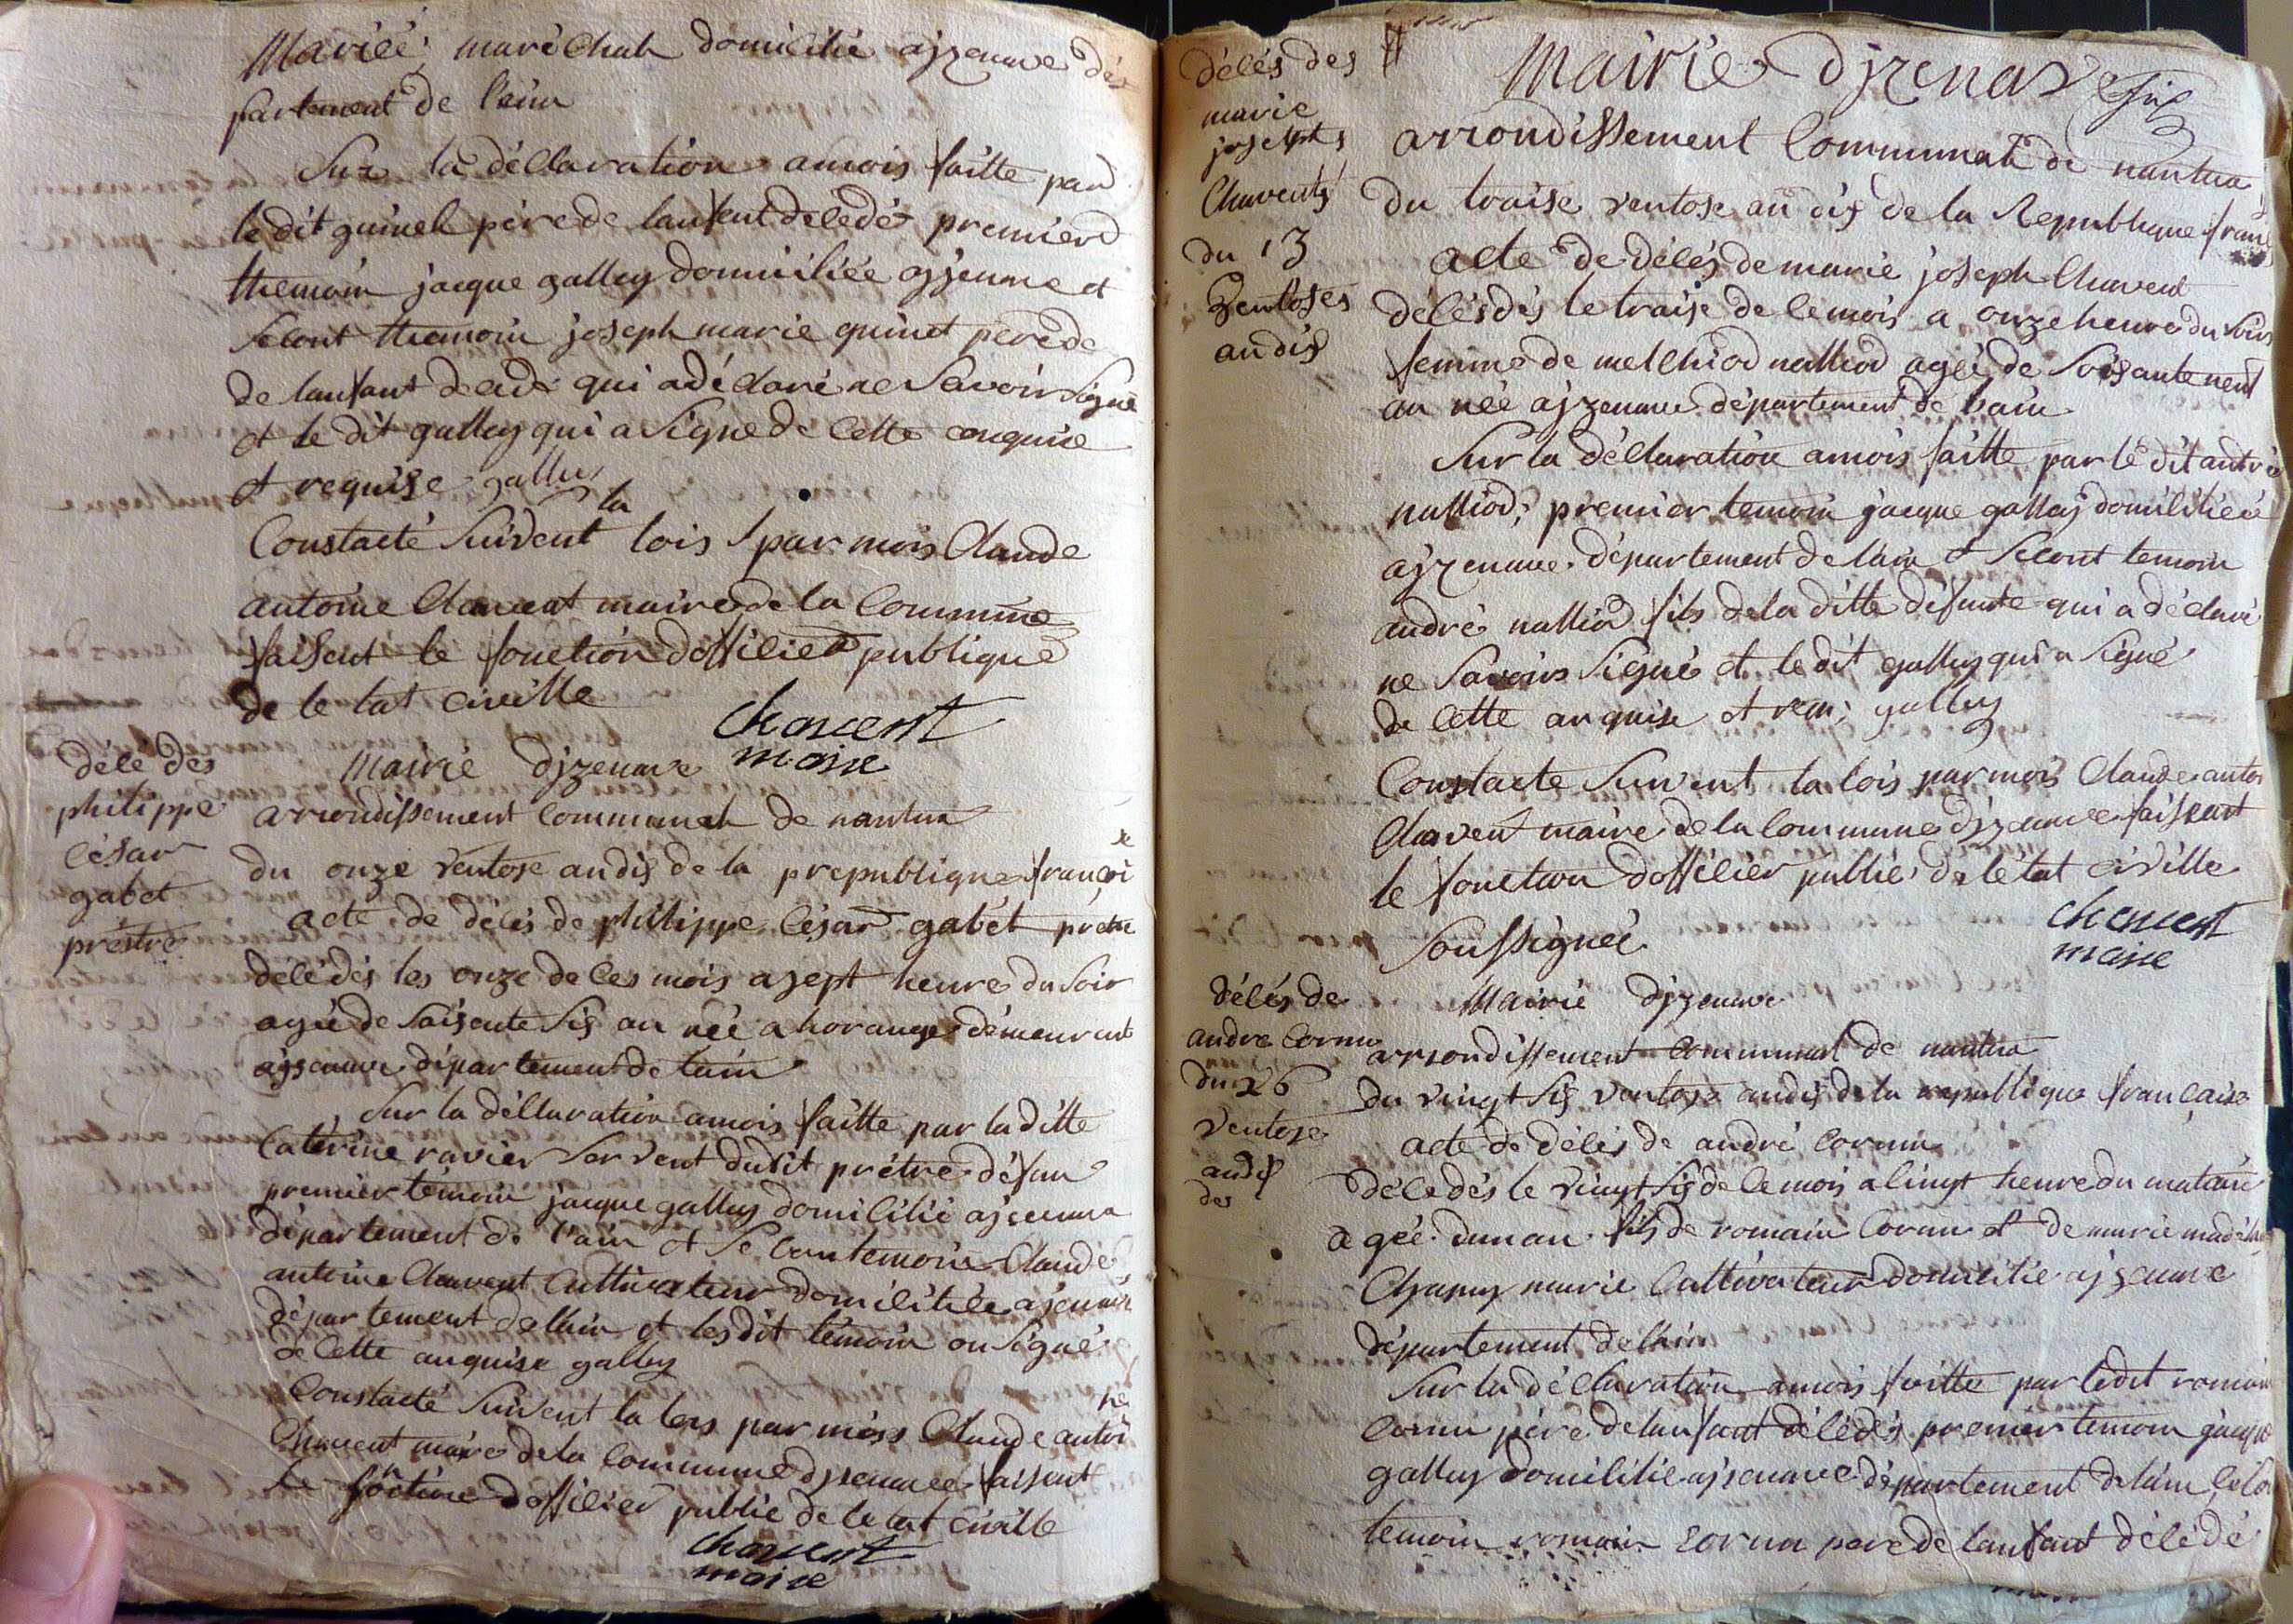 Mariée maréchah domicilié ajzenave dé
partement de l'ain
Sur la déclaration amois faitte par
le dit guinet père de lanfent delédé premierd
themoin jacque galley domiciliée ajzenave et
Secont themoin joseph marie guinet père de
de lanfant decidé qui a déclaré ne Savoir Signe
et le dit galley qui a Signe de Cette enquise
et requise galley
la
Constacté Suivent lois par mois Claude
antoine Chavent maire de la Commune
faisent le fonction dofficier publique
de le tat civille
Chavent
maire
délé des
philippe
César
gabet
préstre
Mairié djzenave
arrondissement Communah de nantua
se
du onze ventose an dix de la prepublique françoi
acte de délés de philippe César gabet prétre
delédés les onze de ces mois a sept heure du Soir
agée de Soisente Six an née a horanges démeurent
ajzenave département de lain
Sur la déllaration amois faitte par la ditte
Caterine ravier Servent dudit prétre défun
premier temoin jacque galley domicilié ajzenave
département de l'ain et Secon temoin Claude
antoine Chavent Cultivateur domicilié ajzenave
département de lain et les dit témoin on Signé
de Cette anquise galley
ne
Constacté Suivent la lois par mois Claude antoi
Chavent maire de la commune djzenave faisent
le fontion dofficier public de le tat civille
Chavent
maire
délés des
marie
josephs
Chavents
du 13
Ventoses
an dix
Mairie djzenave
arrondissement Communah de nantua
du traise ventose an dix de la Republique franç
acte de délés de marie joseph Chavent
délédés le traise de ce mois a onze heure du Soir
femme de melchiod nalliod agée de Soisante neuf
an née ajzenave département de lain
Sur la déllaration amois faitte par lé dit andré
nalliod, premier temoin jacque galley domiciliée
ajzenave département de lain et Secont temoin
andré nalliod fils de la ditte défunte qui a déclaré
ne Savoirs Signé et le dit galley qui a Signé
de Cette anquise et requi galley
Constacte Suivent la lois par mois Claude antoi
Chavent maire de la Commune djzenave faissent
le fonction dofficier public de létat civille
Soussignée
Chavent
maire
délés de
andre Cornu
du 26
Ventose
an dix
des
Mairié djzenave
arrondissement Communal de nantua
du vingt Six ventose an dix de la republique française
acte de délés de andré Cornu
délédés le vingt Six de ce mois a Cinqt heure du matain
agée dun an fils de romain Cornu et de marie madélai
Chapuy marie Cultivateur domicilié ajzenave
département de lain
Sur la déclaration amois faitte par le dit romain
Cornu père de lanfant délédés premier temoin jacque
galley domicilié ajzenave département de lain Secon
temoin romain Cornu père de lanfant délédé